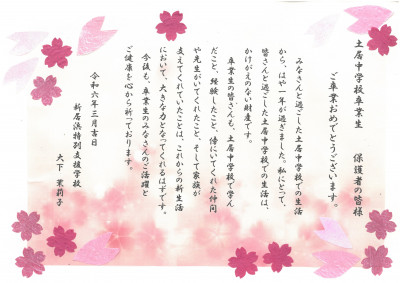 土居中学校卒業生　保護者の皆様
ご卒業おめでとうございます。
みなさんと過ごした土居中学校での生活
から、はや一年が過ぎました。私にとって、
皆さんと過ごした土居中学校での生活は、
かけがえのない財産です。
卒業生の皆さんも、土居中学校で学ん
だこと、経験したこと、傍にいてくれた仲間
や先生がいてくれたこと、そして家族が
支えてくれていたことは、これからの新生活
において、大きな力となってくれるはずです。
今後も、卒業生のみなさんのご活躍と
ご健康を心から祈っております。
令和六年三月吉日
新居浜特別支援学校
大下　茉莉子